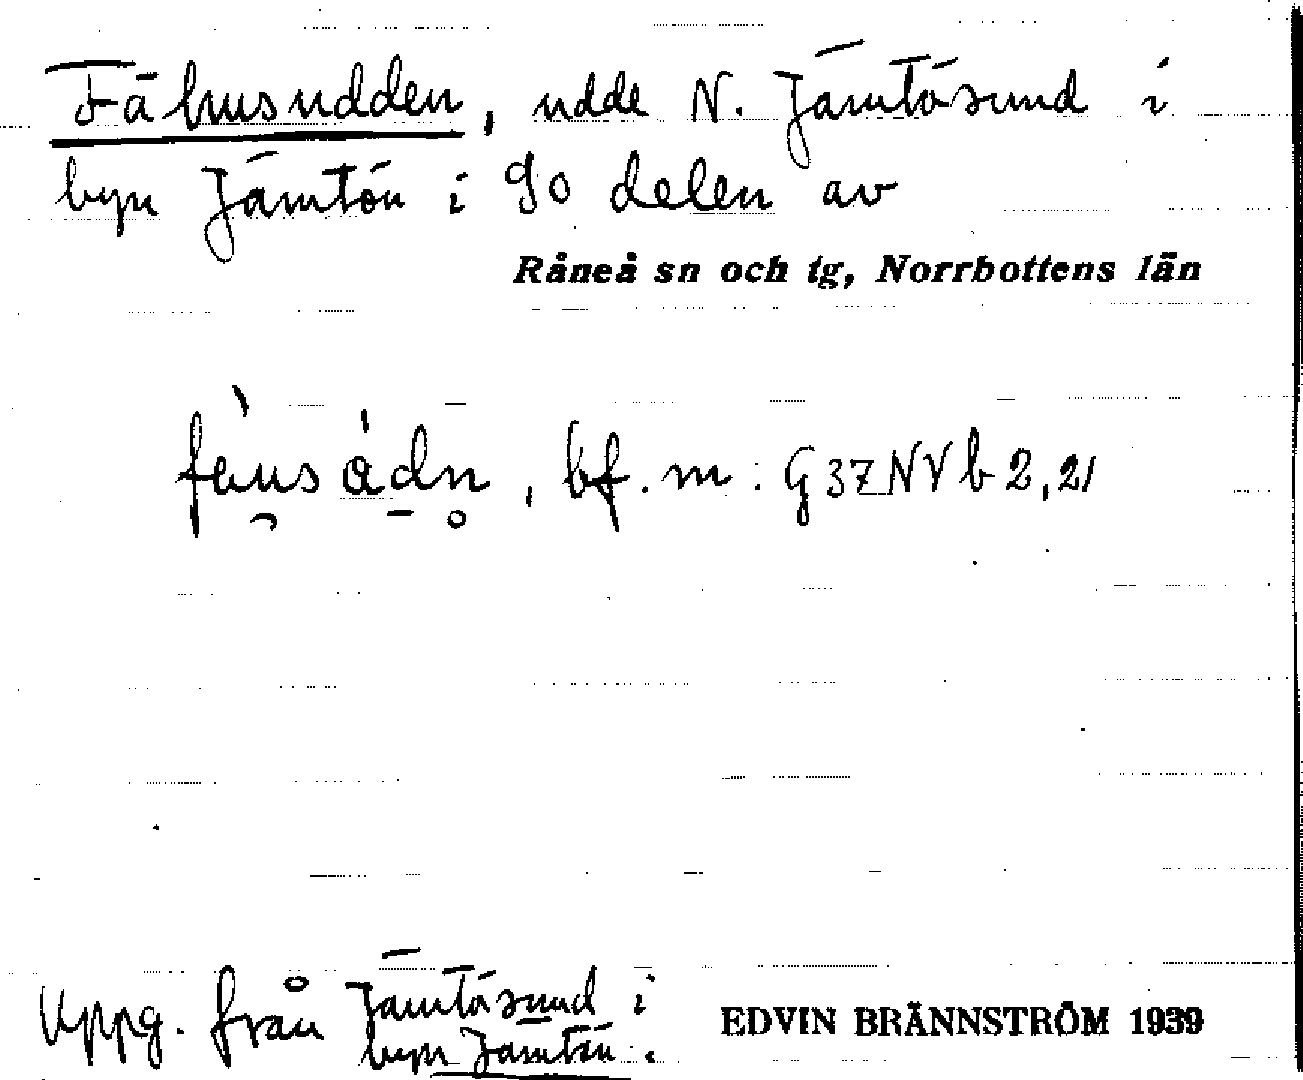 Fähusudden, udde N. Jämtösund i
byn Jämtön i SO delen av
Råneå sn och tg, Norrbottens län
bf. m: G37NVb2,21
Uppg. från Jämtösund i
byn Jämtön.
EDVIN BRÄNNSTRÖM 1939